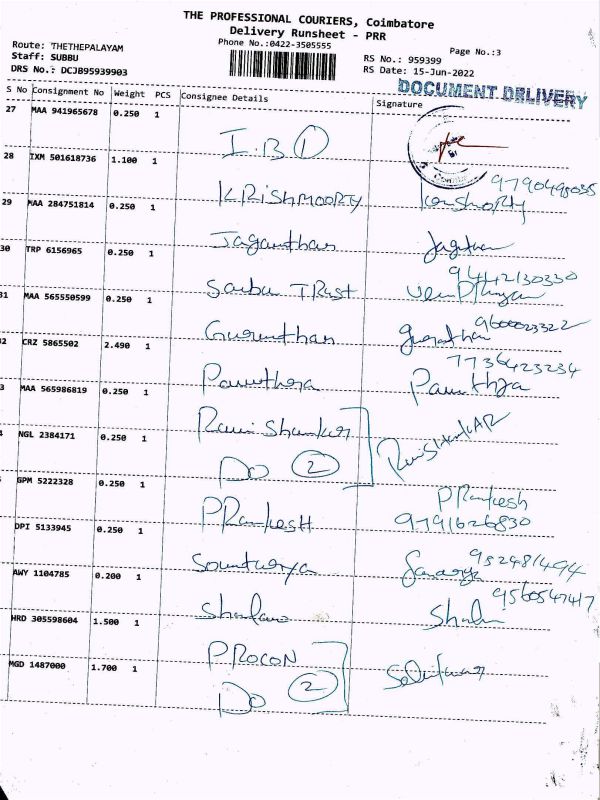 THE PROFESSIONAL COURIERS, Coimbatore
Delivery Runsheet - PRR
Phone No.:0422-3505555
Page No.:3
Route: THETHEPALAYAM
Staff: SUBBU
DRS No.: DCJB95939903
RS No.: 959399
RS Date: 15-Jun-2022
DOCUMENT DELIVERY
S No Consignment No Weight PCS Consignee Details Signature
27 MAA 941965678 0.250 1
I.B ①
28 IXM 501618736 1.100 1
9790498035
KRISHMOORTY
29 MAA 284751814 0.250 1
Jaganthan
30 TRP 6156965 0.250 1
9442130330
Saibu TRust
31 MAA 565550599 0.250 1
9600023322
Gurunthan
32 CRZ 5865502 2.490 1
7736423234
Pavithra
3 MAA 565986819 0.250 1
Ravi Shankar
NGL 2384171 0.250 1
DO ②
GPM 5222328 0.250 1
PRankesh
PRankesH 9791626830
DPI 5133945 0.250 1
952481494
Sountwarya
AWY 1104785 0.200 1
9560547417
HRD 305598604 1.500 1
PROCON
MGD 1487000 1.700 1
DO ②